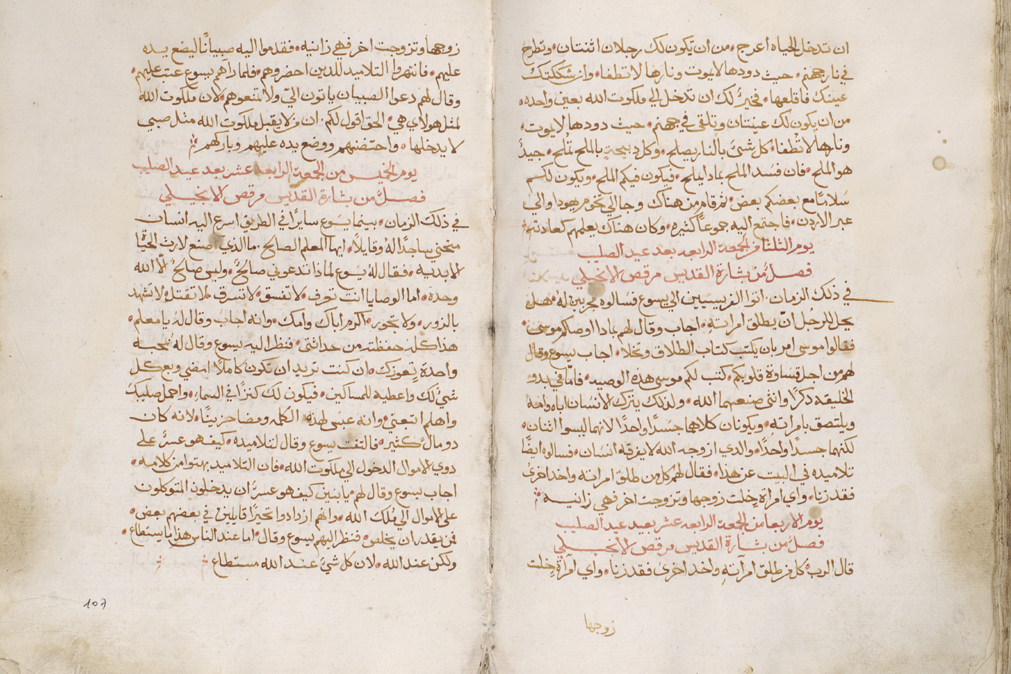 ان تدخل الحياه اعرج من ان تكون لك رجلان اثنتان وتطرح
في نار جهنم حيث دودها لايموت ونارها لاتطفا وان شككتك
عينك فاقلعها فخير لك ان تدخل الي ملكوت الله بعين واحده
من ان يكون لك عينتان وتلقى في جهنم حيث دودها لايموت
ونارها لاتطفا كل شئ بالنار يصلح وكل دبيحة بالملح تملح جيد
هو الملح فان فسد الملح بمادا يملح فيكون فيكم الملح ويكون لكم
سلامًا مع بعضكم بعض ثم قام من هناك وجا الي تخوم يهودا والي
عبر الاردن فاجتمع اليه جموعًا كثيره وكان هناك يعلمهم كعادته
يوم الثلثا من الجمعة الرابعه بعد عيد الصليب
فصلٌ من بشارة القديس مرقص الانجيلي
في ذلك الزمان اتوا الفريسيين الي يسوع فسالوه مجربين له هل
يحل للرجل ان يطلق امراته اجاب وقال لهم بمادا اوصاكم موسى
فقالوا موسى امر بان يكتب كتاب الطلاق وتخلا اجاب يسوع وقال
لهم من اجل قساوة قلوبكم كتب لكم موسى هذه الوصيه فاما في بدو
الخليقه ذكرًا وانثى صنعهما الله ولذلك يترك الانسان اباه وامه
ويلتصق بامراته ويكونان كلاهما جسدًا واحدًا لانهما ليسوا اثنان
لكنهما جسدًا واحدًا والدي ازوجه الله لا يفرقه انسان فسالوه ايضًا
تلاميده في البيت عن هذا فقال لهم كل من طلق امراته واخد اخرى
فقد زناء واي امراةٍ خلت زوجها وتزوجت اخر فهي زانيه
يوم الاربعا من الجمعة الرابعه عشر بعيد الصليب
فصلٌ من بشارة القديس مرقص الانجيلي
قال الرب كل من طلق امراته واخد اخرى فقد زناء واي امراةٍ خلت
زوجها
زوجها وتزوجت اخر فهي زانيه فقدموا اليه صبيانًا ليضع يده
عليهم فانتهروا التلاميد للدين احضروهم فلما راهم يسوع عتب عليهم
وقال لهم دعوا الصبيان ياتون الي ولا تمنعوهم لان ملكوت الله
لمثل هولاي هي الحق اقول لكم ان من لا يقبل ملكوت الله مثل صبي
لا يدخلها واحتضنهم ووضع يده عليهم وباركهم
يوم الخميس من الجمعة الرابعه عشر بعد عيد الصليب
فصلٌ من بشارة القديس مرقص الانجيلي
في ذلك الزمان بينما يسوع سايرًا في الطريق اسرع اليه انسان
منحني ساجدًا له وقايلًا ايها المعلم الصالح ما الذي اصنع لارث الحياة
الابديه فقال له يسوع لماذا تدعوني صالحٌ وليس صالحٌ الا الله
وحده اما الوصايا انت تعرف لاتفسق لاتسرق لا تقتل لا تشهد
بالزور ولا تجور اكرم اباك وامك وانه اجاب وقال له يا معلم
هذا كله حفظته من حداثتي فنظر اليه يسوع وقال له بمحبه
واحدة يعوزك ان كنت تريد ان تكون كاملًا امضي وبع كل
شئ لك واعطيه للمساكين فيكون لك كنزًا في السماء واحمل صليبك
واهلم اتبعني وانه عبس لهذه الكلمه ومضا حزينًا لانه كان
دو مال كثير فالتفت يسوع وقال لتلاميده كيف هو عسرٌ على
دوي الاموال الدخول الي ملكوت الله فان التلاميد بهتوا من كلامه
اجاب يسوع وقال لهم يا بنين كيف هو عسر ان يدخلون المتوكلون
على الاموال الي ملك الله وانهم ازدادوا تحيرًا قايلين في بعضهم بعض
فمن يقدر ان يخلص فنظر اليهم يسوع وقال اما عند الناس هذا ما يستطاع
ولكن عند الله لان كل شئ عند الله مستطاع
107